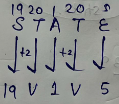 19 20 1 20 5
S T A T E
+2 +2
19 V 1 V 5